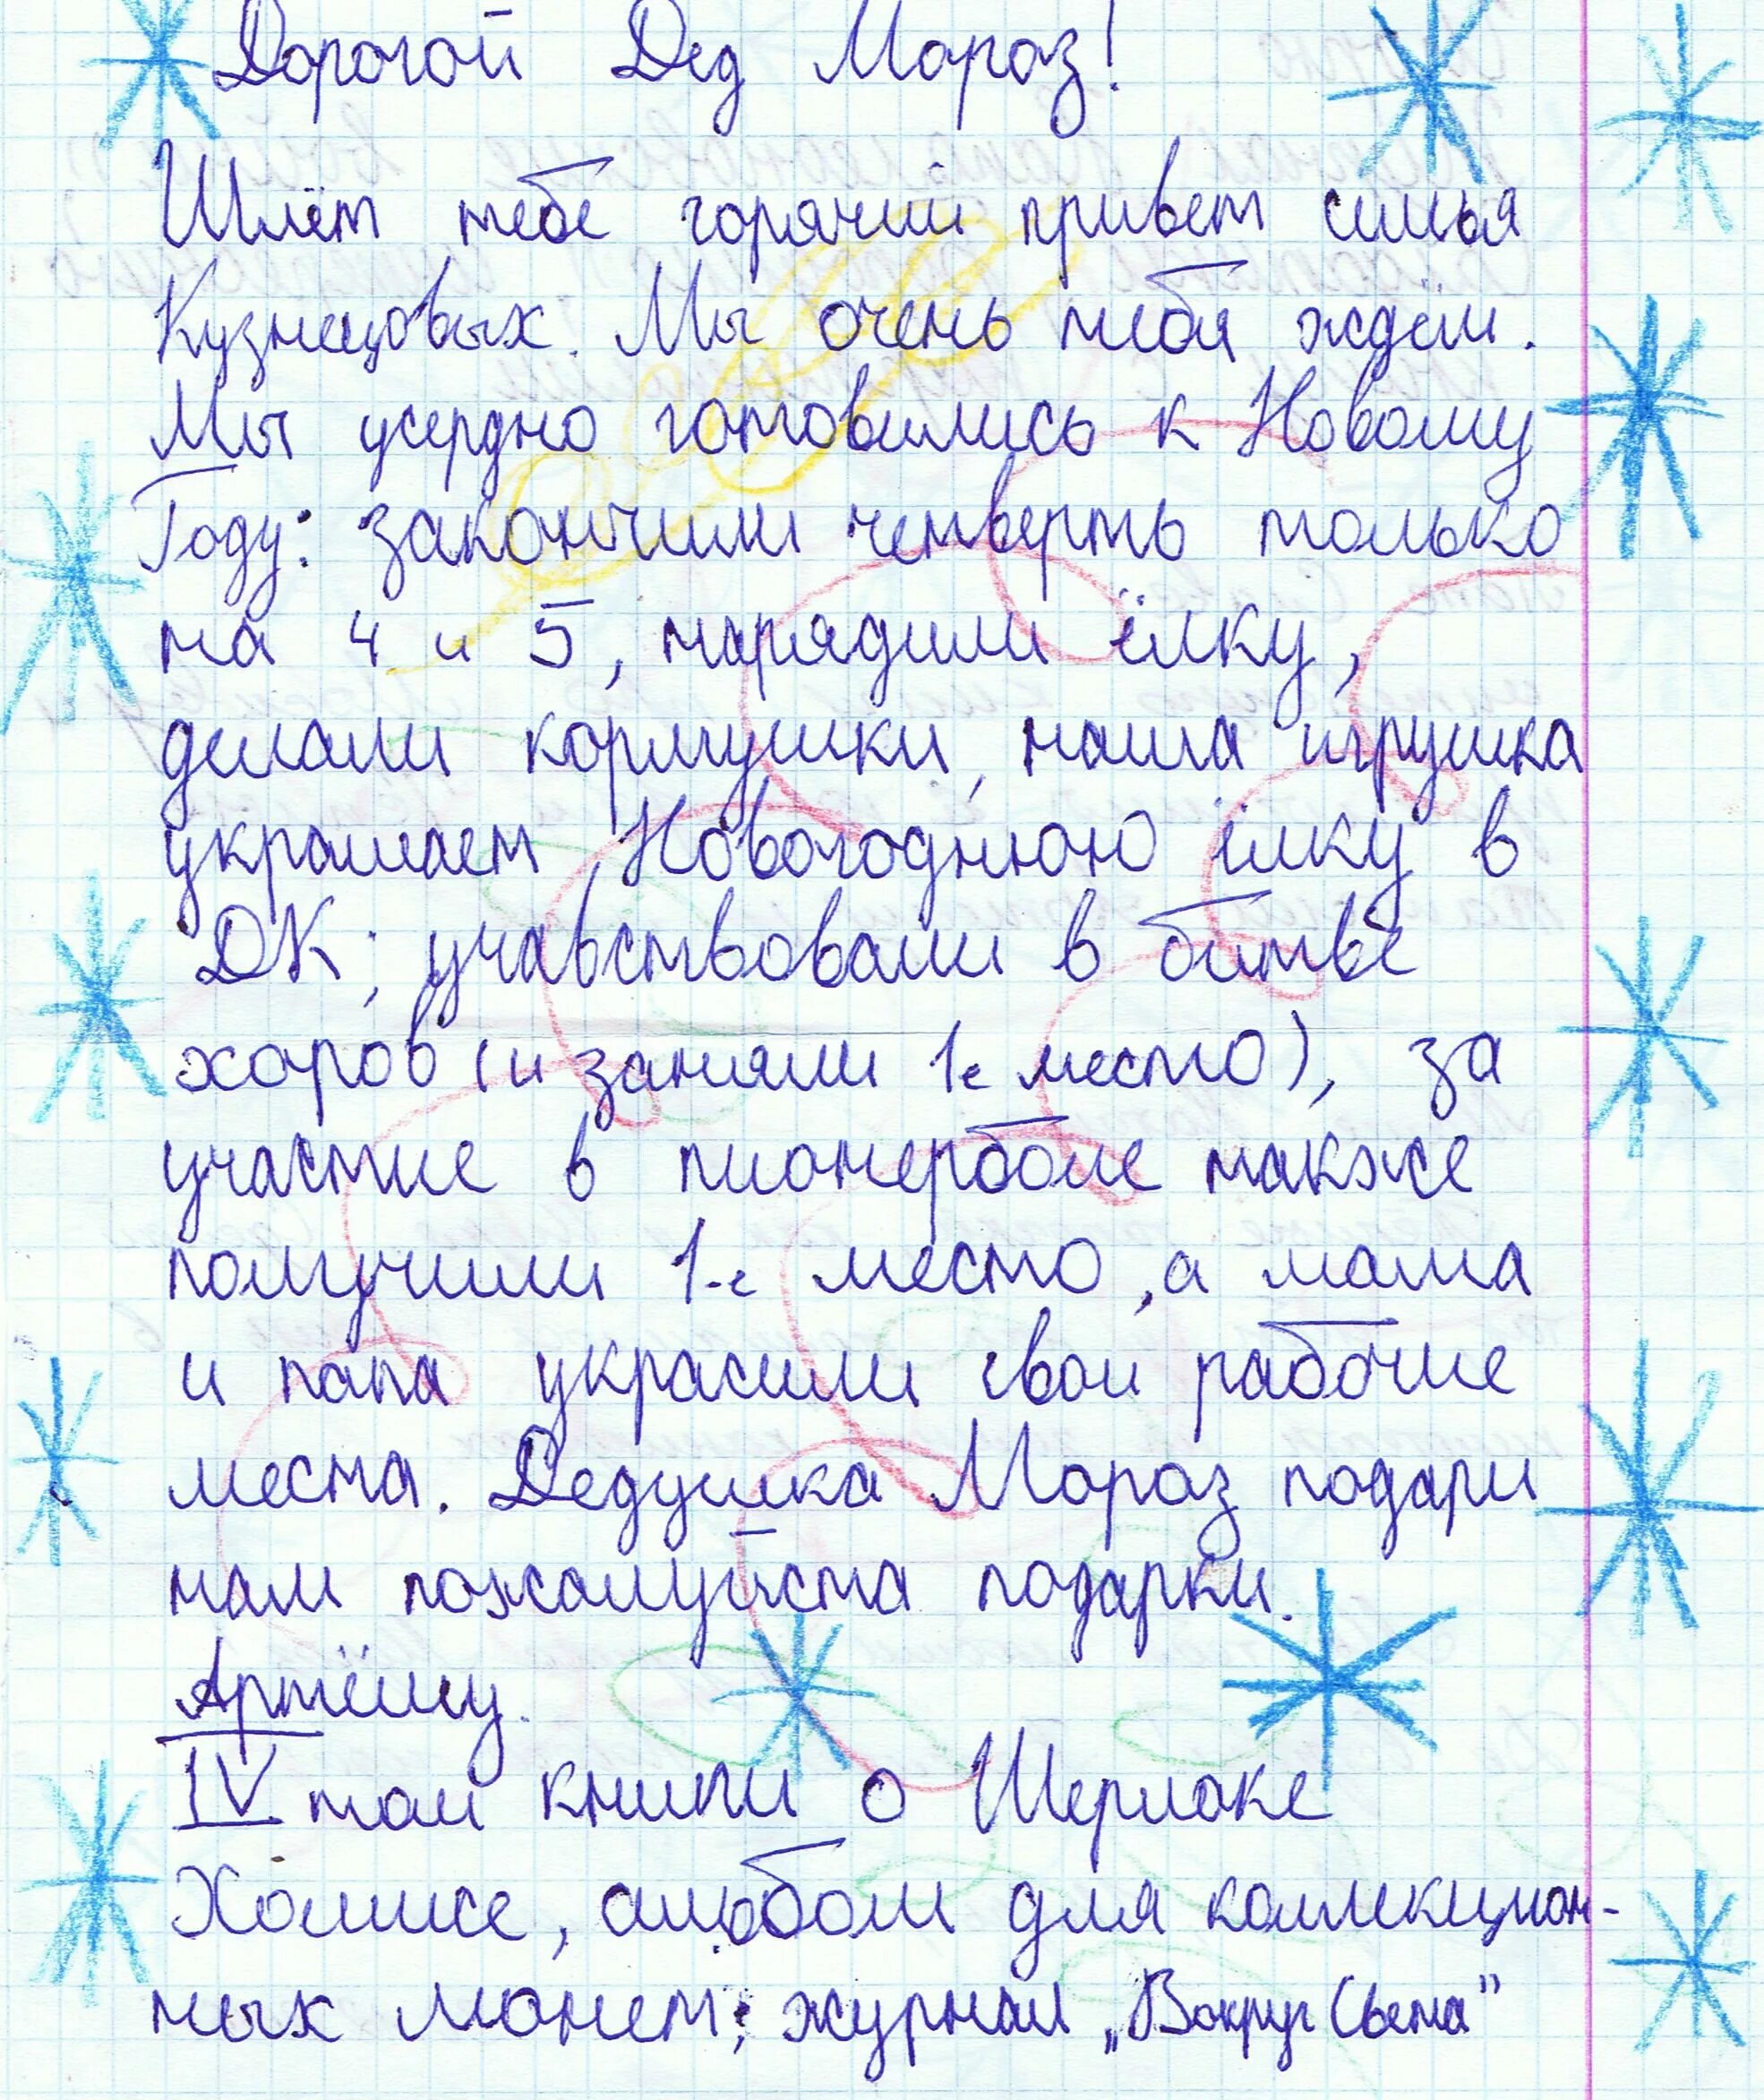 Дорогой Дед Мороз!
Шлём тебе горячий привет семья
Кузнецовых. Мы очень тебя ждём.
Мы усердно готовились к Новому
Году: закончили четверть только
на 4 и 5, нарядили ёлку,
делали кормушки, наша игрушка
украшает Новогоднюю ёлку в
ДК; учавствовали в битве
хоров (и заняли 1е место), за
участие в пионерболе также
получили 1-е место, а мама
и папа украсили свои рабочие
места. Дедушка Мороз подари
нам пожалуйста подарки.
Артёму.
IV том книги о Шерлоке
Холмсе, альбом для коллекцион-
ных монет; журнал „Вокруг Света"